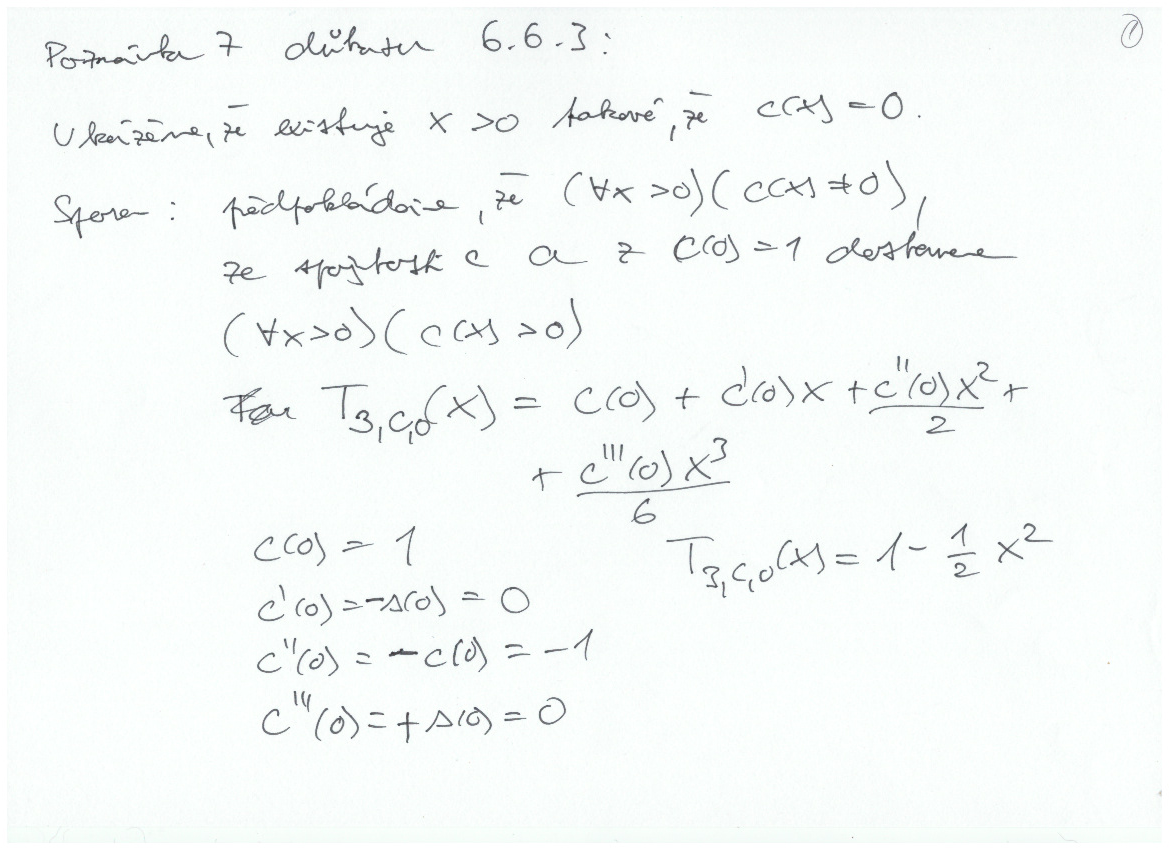 Poznámka z důkazu 6.6.3: ①
Ukážeme, že existuje x > 0 takové, že c(x) = 0.
Sporem: předpokládáme, že (∀x > 0)(c(x) ≠ 0),
ze spojitosti c a z c(0) = 1 dostáváme
(∀x > 0)(c(x) > 0)
T₃,c,₀(x) = c(0) + c'(0)x + c''(0)x²/2 +
+ c'''(0)x³/6
c(0) = 1
T₃,c,₀(x) = 1 - 1/2 x²
c'(0) = -s(0) = 0
c''(0) = -c(0) = -1
c'''(0) = + s(0) = 0